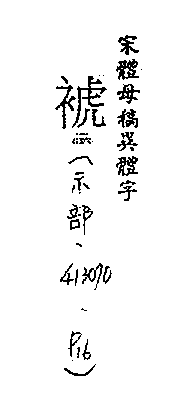 宋體母稿異體字
(示部、413070、P.16)